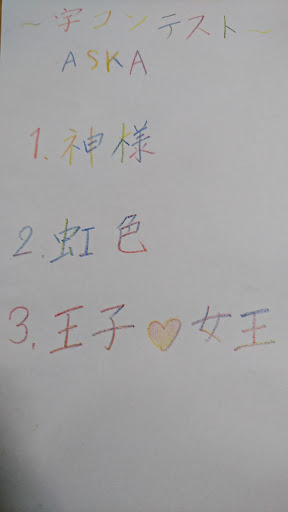 ～字コンテスト～
ASKA
1.神様
2.虹色
3.王子♡女王